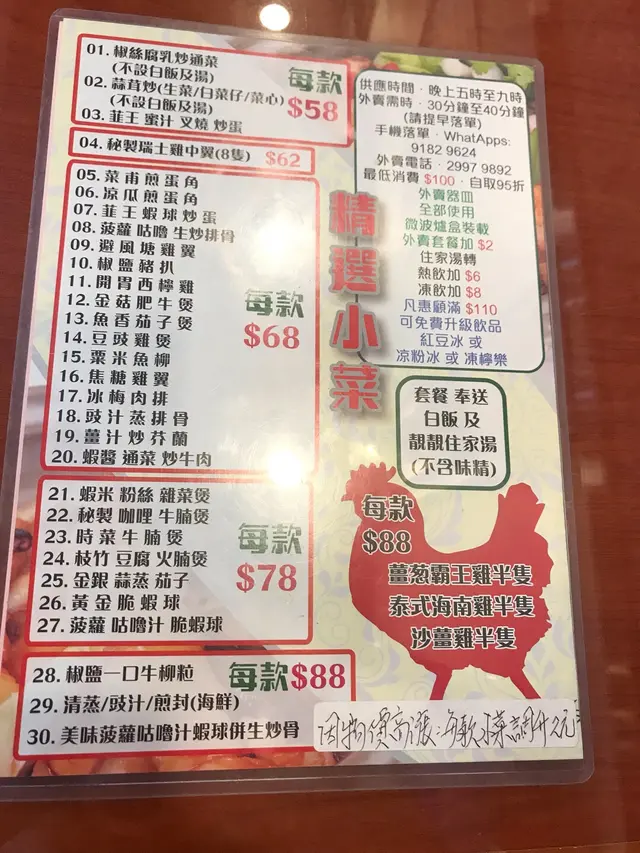 01. 椒絲腐乳炒通菜
(不設白飯及湯)
02. 蒜茸炒(生菜/白菜仔/菜心)
(不設白飯及湯)
03. 韮王 蜜汁 叉燒 炒蛋
每款
$58
04. 秘製瑞士雞中翼(8隻) $62
05. 菜甫煎蛋角
06. 凉瓜煎蛋角
07. 韮王蝦球炒蛋
08. 菠蘿咕嚕 生炒排骨
09. 避風塘雞翼
10. 椒鹽豬扒
11. 開胃西檸雞
12. 金菇肥牛煲
13. 魚香茄子煲
14. 豆豉雞煲
15. 粟米魚柳
16. 焦糖雞翼
17. 冰梅肉排
18. 豉汁蒸排骨
19. 薑汁炒芥蘭
20. 蝦醬 通菜 炒牛肉
每款
$68
21. 蝦米 粉絲 雜菜煲
22. 秘製 咖哩 牛腩煲
23. 時菜牛腩煲
24. 枝竹 豆腐 火腩煲
25. 金銀 蒜蒸 茄子
26. 黃金脆蝦球
27. 菠蘿 咕嚕汁 脆蝦球
每款
$78
28. 椒鹽一口牛柳粒
29. 清蒸/豉汁/煎封(海鮮)
30. 美味菠蘿咕嚕汁蝦球併生炒骨
每款$88
精選小菜
供應時間·晚上五時至九時
外賣需時·30分鐘至40分鐘
(請提早落單)
手機落單·WhatApps:
9182 9624
外賣電話·2997 9892
最低消費 $100·自取95折
外賣器皿
全部使用
微波爐盒裝載
外賣套餐加 $2
住家湯轉
熱飲加 $6
凍飲加 $8
凡惠顧滿 $110
可免費升級飲品
紅豆冰 或
凉粉冰 或 凍檸樂
套餐 奉送
白飯 及
靚靚住家湯
(不含味精)
每款
$88
薑葱霸王雞半隻
泰式海南雞半隻
沙薑雞半隻
因物價高漲:每款小菜調升2元